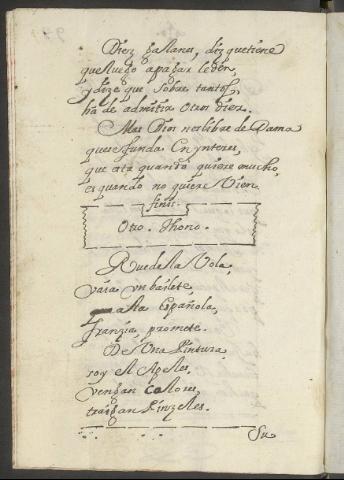 Diez galanes, diz que tiene
que luego a pagar le den,
y dize que sobre tantos,
ha de admitir otros diez.
Mas Dios nos libre de Dama
que se funda en ynteres,
que esta quando quiere mucho,
es quando no quiere Vien.
finis.
Otro. Thono.
Rueda la Vola,
vaia un bailete,
a la Española,
franzia, promete.
De Una Pintura,
soy el Apeles,
vengan colores,
traigan Pinzeles.
Su